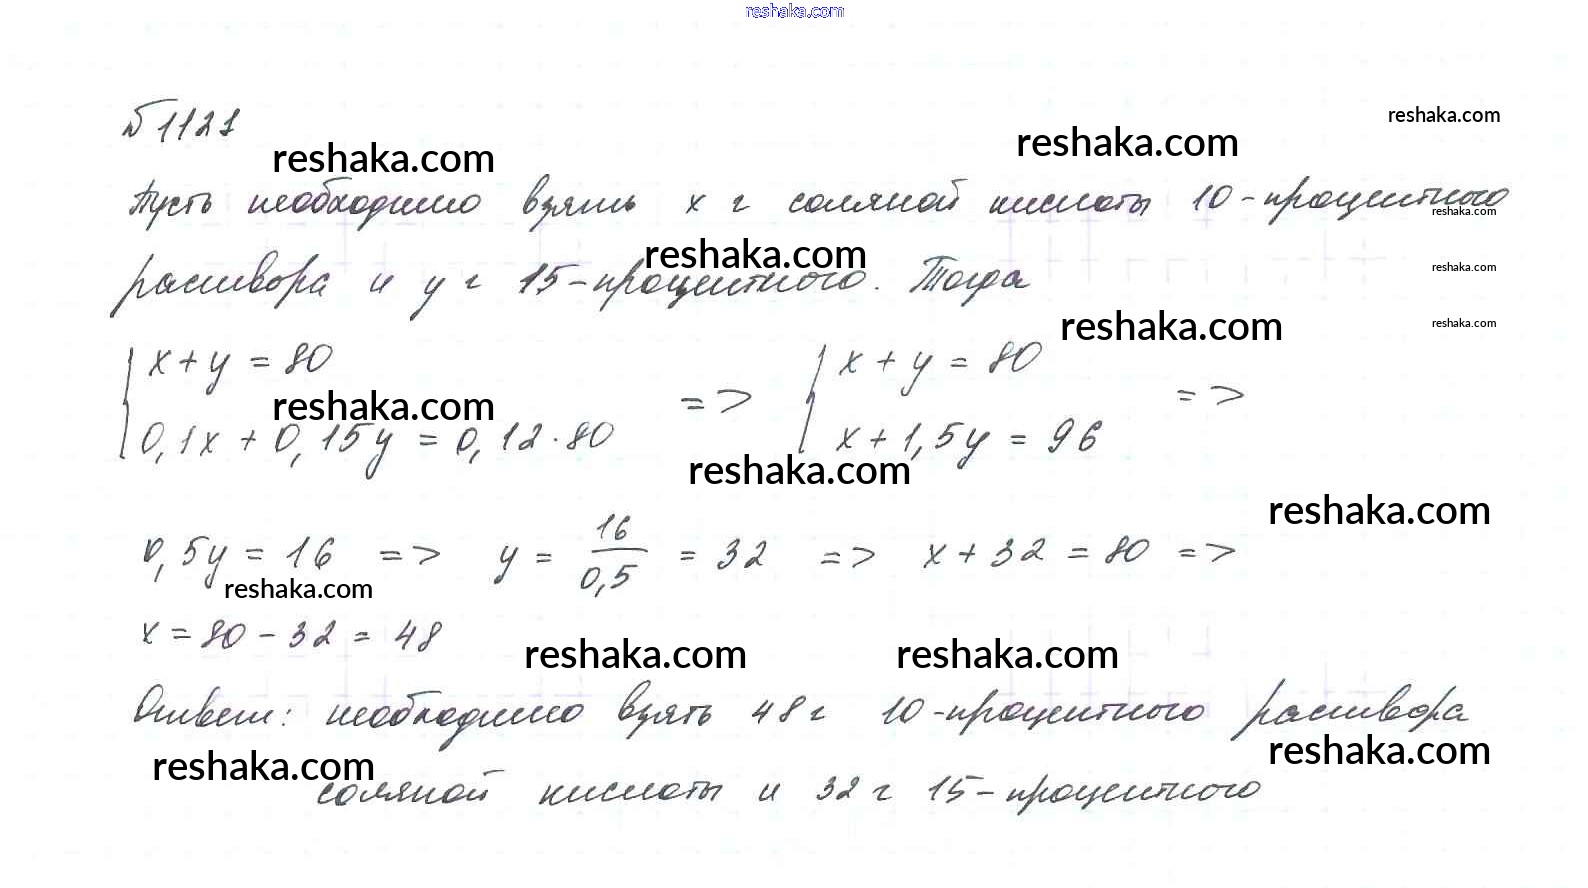 reshaka.com
№1121
reshaka.com
reshaka.com
reshaka.com
Пусть необходимо взять x г соляной кислоты 10-процентного
reshaka.com
раствора и y г 15-процентного. Тогда
reshaka.com
reshaka.com
reshaka.com
reshaka.com
x+y=80 => x+y=80 =>
reshaka.com
0,1x+0,15y=0,12·80 x+1,5y=96
reshaka.com
reshaka.com
0,5y=16 => y=16/0,5=32 => x+32=80 =>
reshaka.com
x=80-32=48
reshaka.com
reshaka.com
Ответ: необходимо взять 48 г 10-процентного раствора
reshaka.com
reshaka.com
соляной кислоты и 32 г 15-процентного